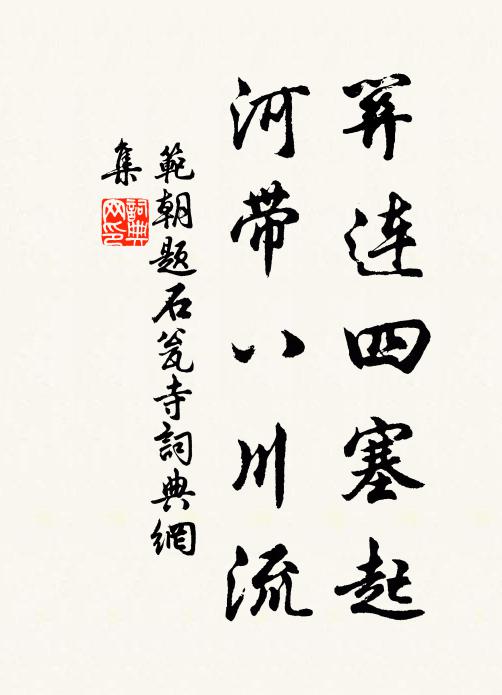 关連四塞起
河带八川流
範朝题石瓮寺詞典網
集
詞典
网印